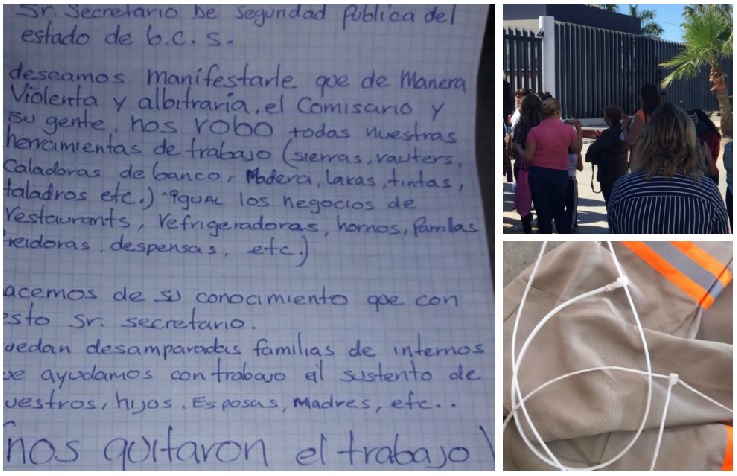 Sr. Secretario De Seguridad publica del
estado de b.c.s.
deseamos manifestarle que de Manera
Violenta y albitraria. el Comisario y
su gente, nos robo todas nuestras
herramientas de trabajo (sierras, rauters,
Caladoras de banco, Madera, lakas, tintas,
taladros etc.) igual los negocios de
restaurants, refrigeradoras, hornos, parrilas
reidoras. despensas, etc.)
acemos de su conocimiento que con
esto Sr. secretario.
uedan desamparadas familias de internos
ue ayudamos con trabajo al sustento de
uestros, hijos. Esposas, Madres, etc..
nos quitaron el trabajo!